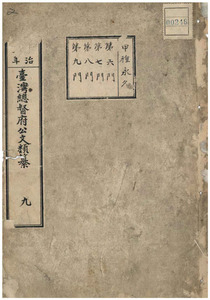 甲種永久
第六門
第七門
第八門
第九門
治
年
臺灣總督府公文類纂
九